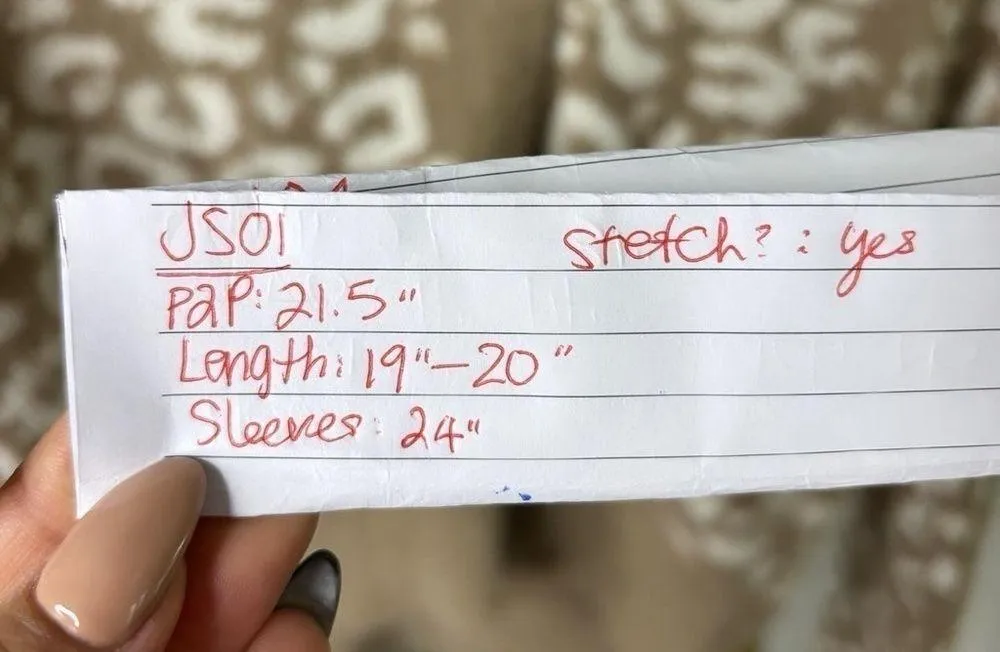 JS01
Stretch? : yes
P2P: 21.5"
Length: 19"-20"
Sleeves: 24"